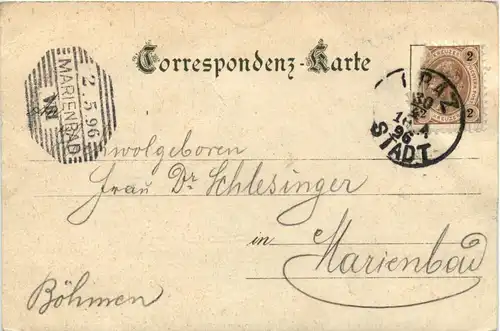 Correspondenz-Karte
2
2
2.5.96
MARIENBAD
GRAZ
30
96
STADT
wolgeboren
Frau Dr Schlesinger
in
Marienbad
Böhmen